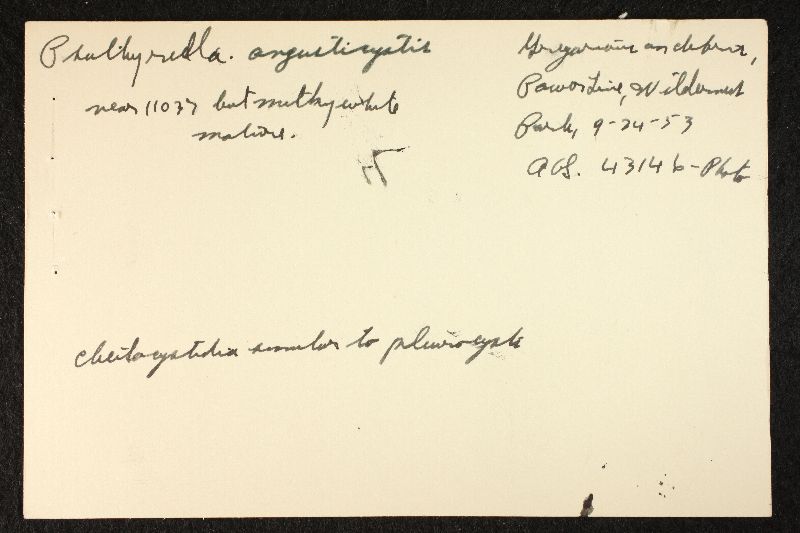 Psathyrella. angusticystis
near 11037 but milky white
mature.
Gregarious on debris,
Power Line, Wilderness
Park, 9-24-53
AHS. 43146-Photo
cheilocystidia similar to pleurocyst